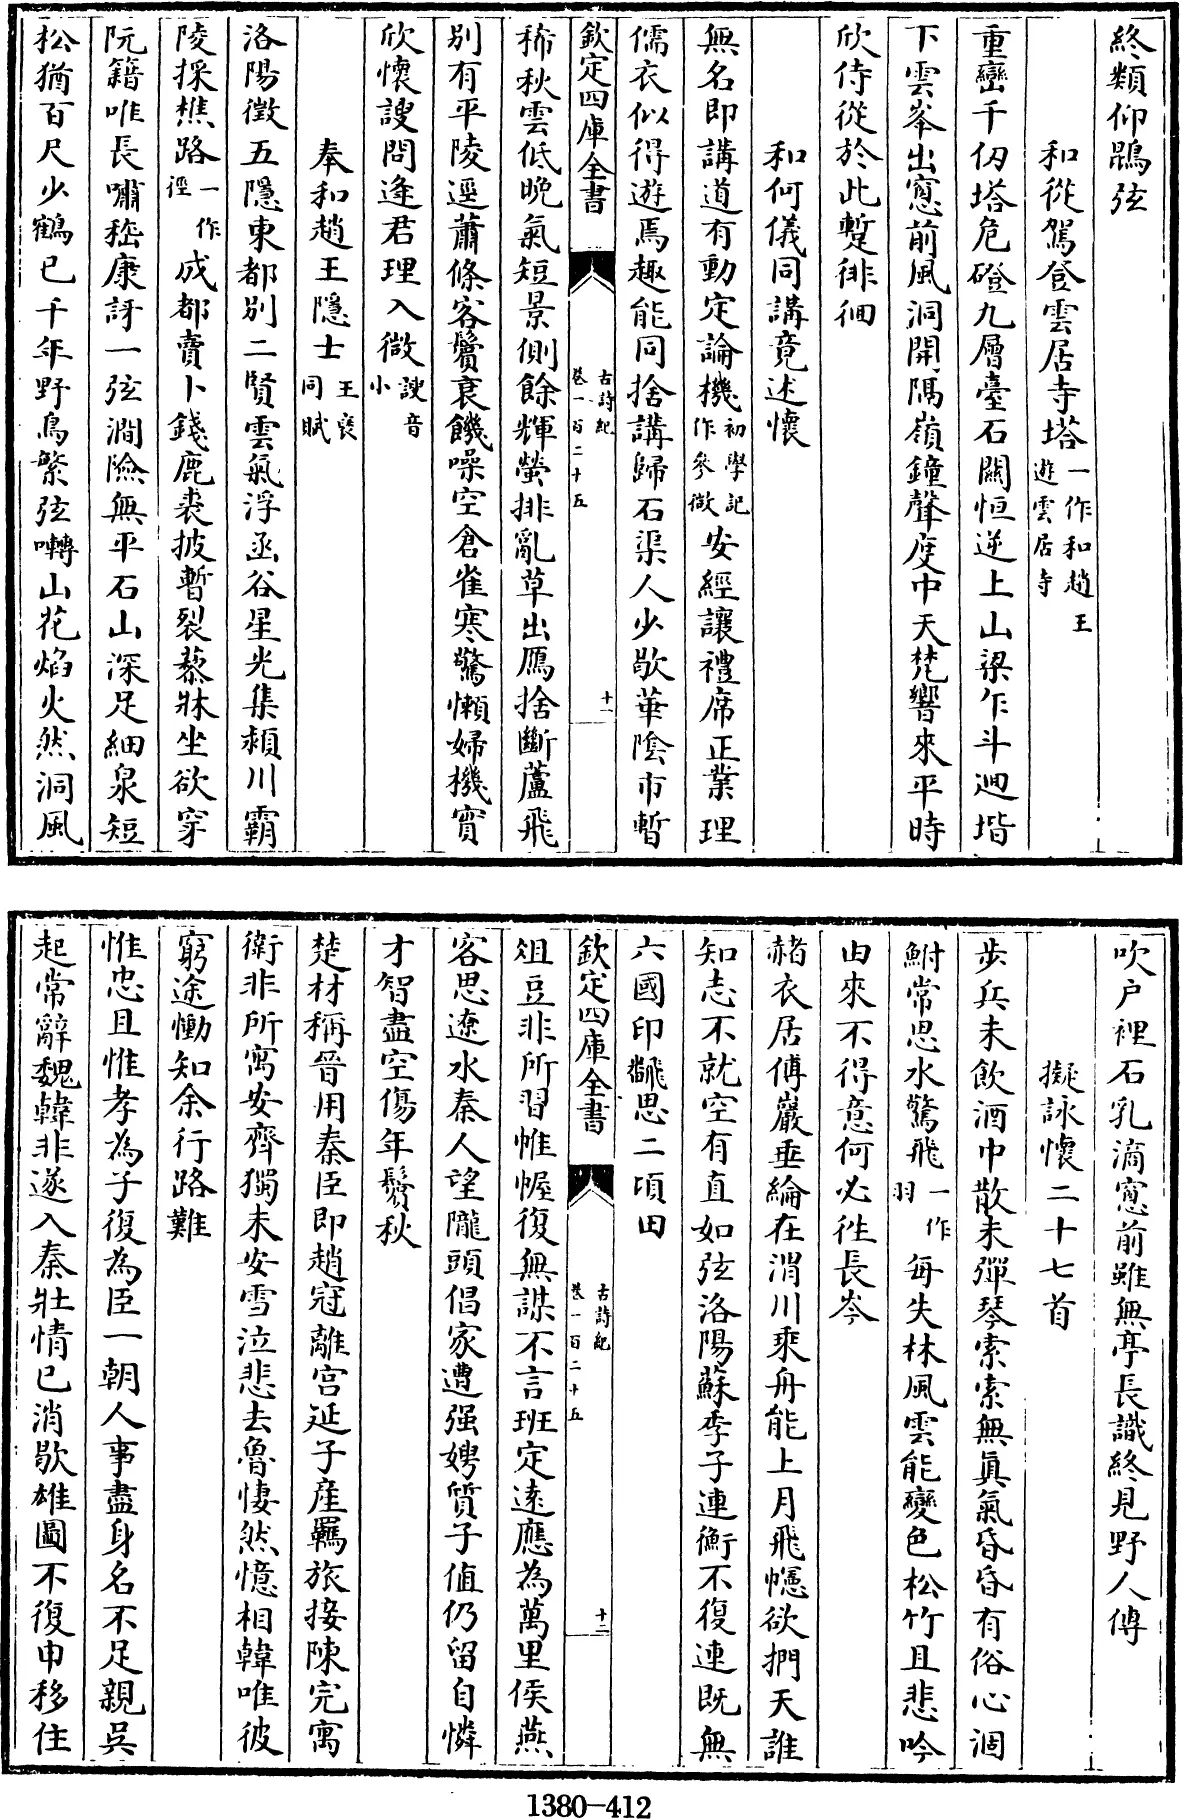 終類仰鵾弦
和從駕登雲居寺塔一作和趙王遊雲居寺
重巒千仭塔危磴九層臺石闗恒逆上山梁乍斗迴堦
下雲峯出窻前風洞開隔嶺鐘聲度中天梵響來平時
欣侍從於此蹔徘徊
和何儀同講竟述懷
無名即講道有動定論機初學記作參微安經讓禮席正業理
儒衣似得遊焉趣能同捨講歸石渠人少歇華陰市暫
欽定四庫全書
古詩紀
卷一百二十五
十一
稀秋雲低晚氣短景側餘輝螢排亂草出鴈捨斷蘆飛
别有平陵逕蕭條客鬢衰饑噪空倉雀寒驚懶婦機實
欣懷謏問逢君理入微謏音小
奉和趙王隱士王褒同賦
洛陽徵五隱東都别二賢雲氣浮函谷星光集潁川霸
陵採樵路一作徑成都賣卜錢鹿裘披暫裂藜牀坐欲穿
阮籍唯長嘯嵇康訝一弦澗險無平石山深足細泉短
松猶百尺少鶴已千年野鳥繁弦囀山花焰火然洞風
吹户裡石乳滴窻前雖無亭長識終見野人傳
擬詠懷二十七首
步兵未飲酒中散未彈琴索索無真氣昏昏有俗心涸
鮒常思水驚飛一作羽每失林風雲能變色松竹且悲吟
由來不得意何必往長岑
赭衣居傅巖垂綸在渭川乘舟能上月飛幰欲捫天誰
知志不就空有直如弦洛陽蘇季子連衡不復連既無
六國印飜思二頃田
欽定四庫全書
古詩紀
卷一百二十五
十二
俎豆非所習帷幄復無謀不言班定遠應為萬里侯燕
客思遼水秦人望隴頭倡家遭强娉質子值仍留自憐
才智盡空傷年鬢秋
楚材稱晉用秦臣即趙冠離宫延子產羈旅接陳完寓
衛非所寓安齊獨未安雪泣悲去魯悽然憶相韓唯彼
窮途慟知余行路難
惟忠且惟孝為子復為臣一朝人事盡身名不足親吳
起常辭魏韓非遂入秦壯情已消歇雄圖不復申移住
1380—412